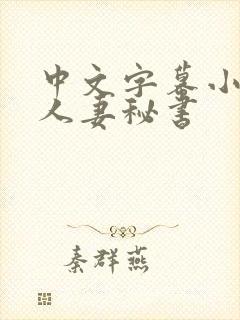 中文字幕小
人妻秘书
秦群燕